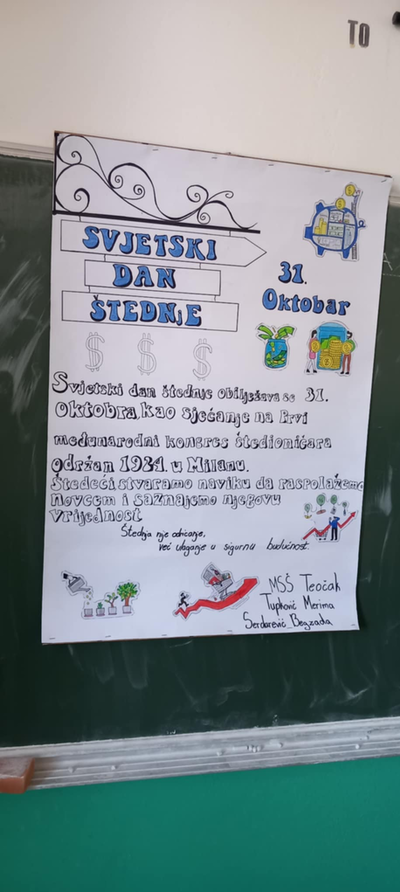 TO
SVJETSKI
DAN
ŠTEDNjE
31.
Oktobar
Svjetski dan štednje obilježava se 31.
Oktobra, kao sjećanje na Prvi
međunarodni kongres štedioničara
održan 1924. u Milanu.
Štedeći stvaramo naviku da raspolažemo
novcem i saznajemo njegovu
vrijednost
Štednja nije odricanje,
već ulaganje u sigurnu budućnost.
MSŠ Teočak
Tupković Merima
Serdarević Begzada